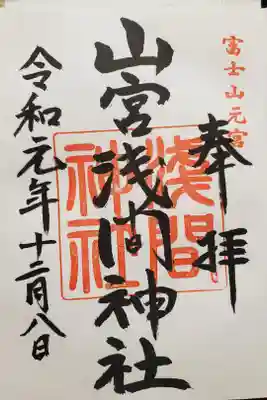 富士山元宮
奉拝
山宮浅間神社
淺間神社
令和元年十二月八日